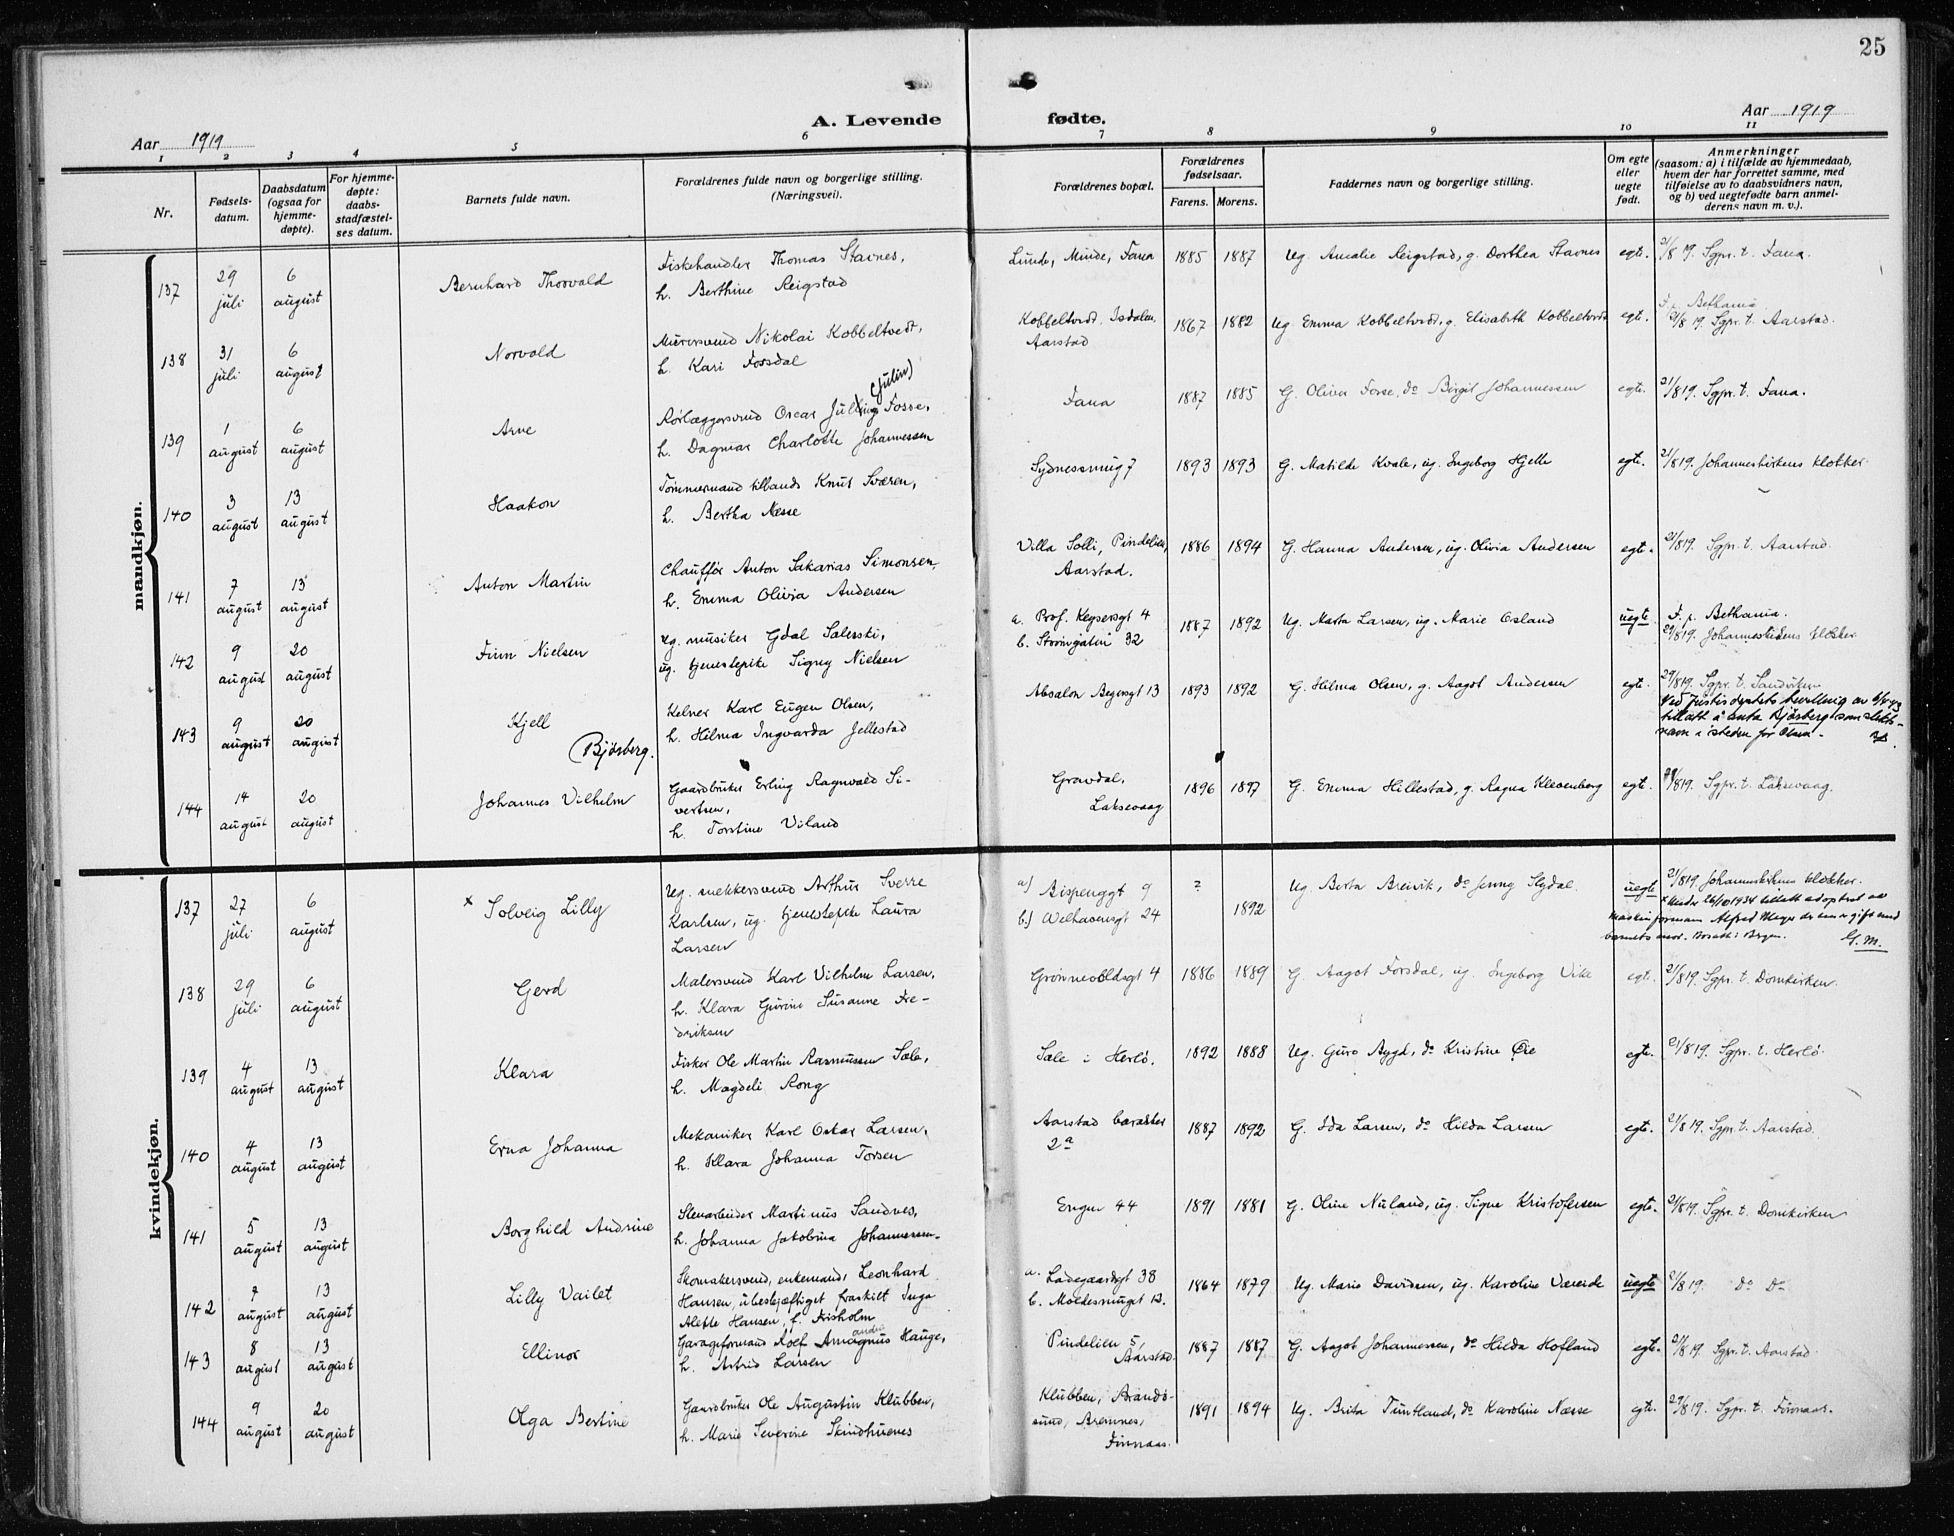 25
A. Levende fødte.
Aar 1919
Aar 1919
1 2 3 4 5 6 7 8 9 10 11
Nr.
Fødsels-
datum.
Daabsdatum
(ogsaa for
hjemme-
døpte).
For hjemme-
døpte:
daabs-
stadfæstel-
ses datum.
Barnets fulde navn.
Forældrenes fulde navn og borgerlige stilling.
(Næringsvei).
Forældrenes bopæl.
Forældrenes
fødselsaar.
Farens. Morens.
Faddernes navn og borgerlige stilling.
Om egte
eller
uegte
født.
Anmerkninger
(saasom: a) i tilfælde av hjemmedaab,
hvem der har forrettet samme, med
tilføielse av to daabsvidners navn,
og b) ved uegtefødte barn anmel-
derens navn m. v.).
mandkjøn.
137 29 juli 6 august Bernhard Thorvald
Fiskehandler Thomas Stavnes,
h. Berthine Reigstad
Lunde, Minde, Fana 1885 1887 Ug. Amalie Reigstad, g. Dorthea Stavnes egte. 21/8 19. Sgpr. t. Fana.
138 31 juli 6 august Norvald
Murersvend Nikolai Kobbeltvedt,
h. Kari Forsdal
Kobbeltvedt, Isdalen, 1867 1882 Ug. Emma Kobbeltvedt, g. Elisabeth Kobbeltvedt egte.
Aarstad
F. p. Bethania
21/8 19. Sgpr. t. Aarstad.
139 1 august 6 august Arne
(Julin)
Rørlæggersvend Oscar Fosse,
h. Dagmar Charlotte Johannessen
Fana 1887 1885 G. Oliva Fosse, do Birgit Johannessen egte. 21/819. Sgpr. t. Fana.
140 3 august 13 august Haakon
Tømmermand tillands Knut Sværen,
h. Bertha Nesse
Sydnessmug 7 1893 1893 G. Matilde Kvale, ug. Ingeborg Hjelle egte. 21/819. Johanneskirkens klokker.
141 7 august 13 august Anton Martin
Chauffør Anton Sakarias Simonsen,
h. Emma Olivia Andersen
Villa Solli, Pindelien, 1886 1894 G. Hanna Andersen, ug. Olivia Andersen egte. 21/819. Sgpr. t. Aarstad.
Aarstad.
142 9 august 20 august Finn Nielsen
Ug. musiker Gdal Salerski,
ug. tjenestepike Signy Nielsen
a. Prof. Keysersgt 4 1887 1892 Ug. Marta Larsen, ug. Marie Osland uegte
b. Strømgaten 32
F. p. Bethania.
29/819. Johanneskirkens klokker
143 9 august 20 august Kjell
Bjørsberg.
Kelner Karl Eugen Olsen,
h. Hilma Ingvarda Jellestad
Absalon Beyersgt 13 1893 1892 G. Hilma Olsen, g. Aagot Andersen egte. 29/819. Sgpr. t. Sandviken
Ved Justisdeptets bevilling av
tillatt å anta Bjørsberg som slekts-
navn i steden for Olsen.
144 14 august 20 august Johannes Vilhelm
Gaardbruker Erling Ragnvald Si-
vertsen,
h. Torstine Viland
Gravdal, 1896 1897 G. Emma Hillestad, g. Ragna Klevenberg egte. 29/819. Sgpr. t. Laksevaag.
Laksevaag
kvindekjøn.
137 27 juli 6 august x Solveig Lilly
Ug. snekkersvend Arthur Sverre
Karlsen, ug. tjenestepike Laura
Larsen
a) Bispenggt 9 ? Ug. Berta Breivik, do Jenny Sygdal. uegte 21/819. Johanneskirkens klokker.
b.) Welhavensgt 24 1892
x Under 26/10 1934 tillatt adoptert av
maskinformann Alfred Meyer der em. gift med
barnets mor. Bosatt i Bergen. G. M.
138 29 juli 6 august Gerd
Malersvend Karl Vilhelm Larsen,
h. Klara Gurine Susanne Fre-
driksen
Grønnevoldsgt 4 1886 1889 G. Aagot Forsdal, ug. Ingeborg Vike egt. 21/819. Sgpr. t. Domkirken.
139 4 august 13 august Klara
Fisker Ole Martin Rasmussen Sæle,
h. Magdeli Rong
Sæle i Herlø. 1892 1888 Ug. Guro Rygd, do Kristine Øie egte. 21/819. Sgpr. t. Herlø.
140 4 august 13 august Erna Johanna
Mekaniker Karl Oskar Larsen,
h. Klara Johanna Torsen
Aarstad barakker 1887 1892 G. Ida Larsen, do Hilda Larsen egte. 21/8 19. Sgpr. t. Aarstad.
2a
141 5 august 13 august Borghild Andrine
Stenarbeider Martinus Sandnes,
h. Johanna Jakobina Johannessen.
Engen 44 1891 1881 G. Oline Nuland, ug. Signe Kristofersen egte. 21/819. Sgpr. t. Domkirken
142 7 august 13 august Lilly Vailet
Skomakersvend, enkemand, Leonhard
Hansen, ubeskjæftiget fraskilt Inga
Alette Hansen, f. Frisholm
a. Ladegaardsgt 38 1864 1879 Ug. Marie Davidsen, ug. Karoline Væreide uegte 21/8 19. do Do
b. Moldesmuget 12.
143 8 august 13 august Ellinor
Garageformand Rolf Hauge,
h. Astrid Larsen
Pindelien 5, 1887 1887 G. Aagot Johannessen, do Hilda Hofland egte. 21/8 19. Sgpr. t. Aarstad.
Aarstad.
144 9 august 20 august Olga Bertine
Gaardbruker Ole Augustin Klubben,
h. Marie Severine Skindhuenes
Klubben, Brandø- 1891 1894 Ug. Brita Tuntland, do Karoline Næsse egte. 29/819. Sgpr. t. Finnaas.
sund, Bremnes,
Finnaas.